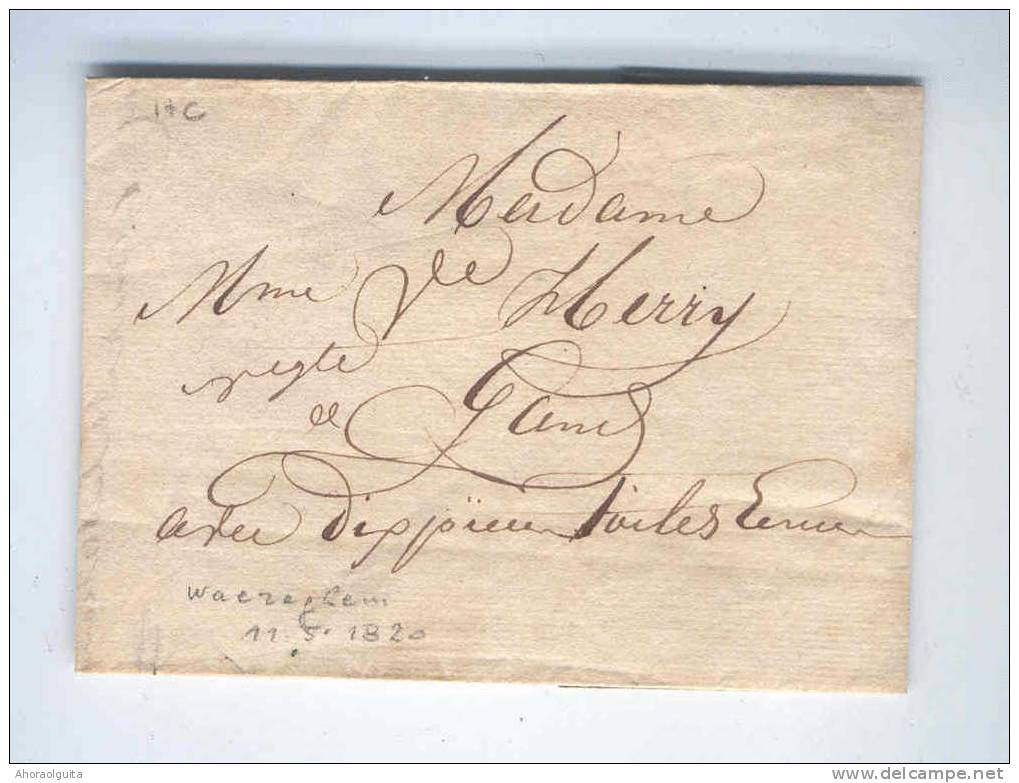 17 C
Madame
Mme de Herry
negte
a Gand
avec dix piecen toiles
Waereghem
11.5.1820
Ahoraolguita
delcampe.net